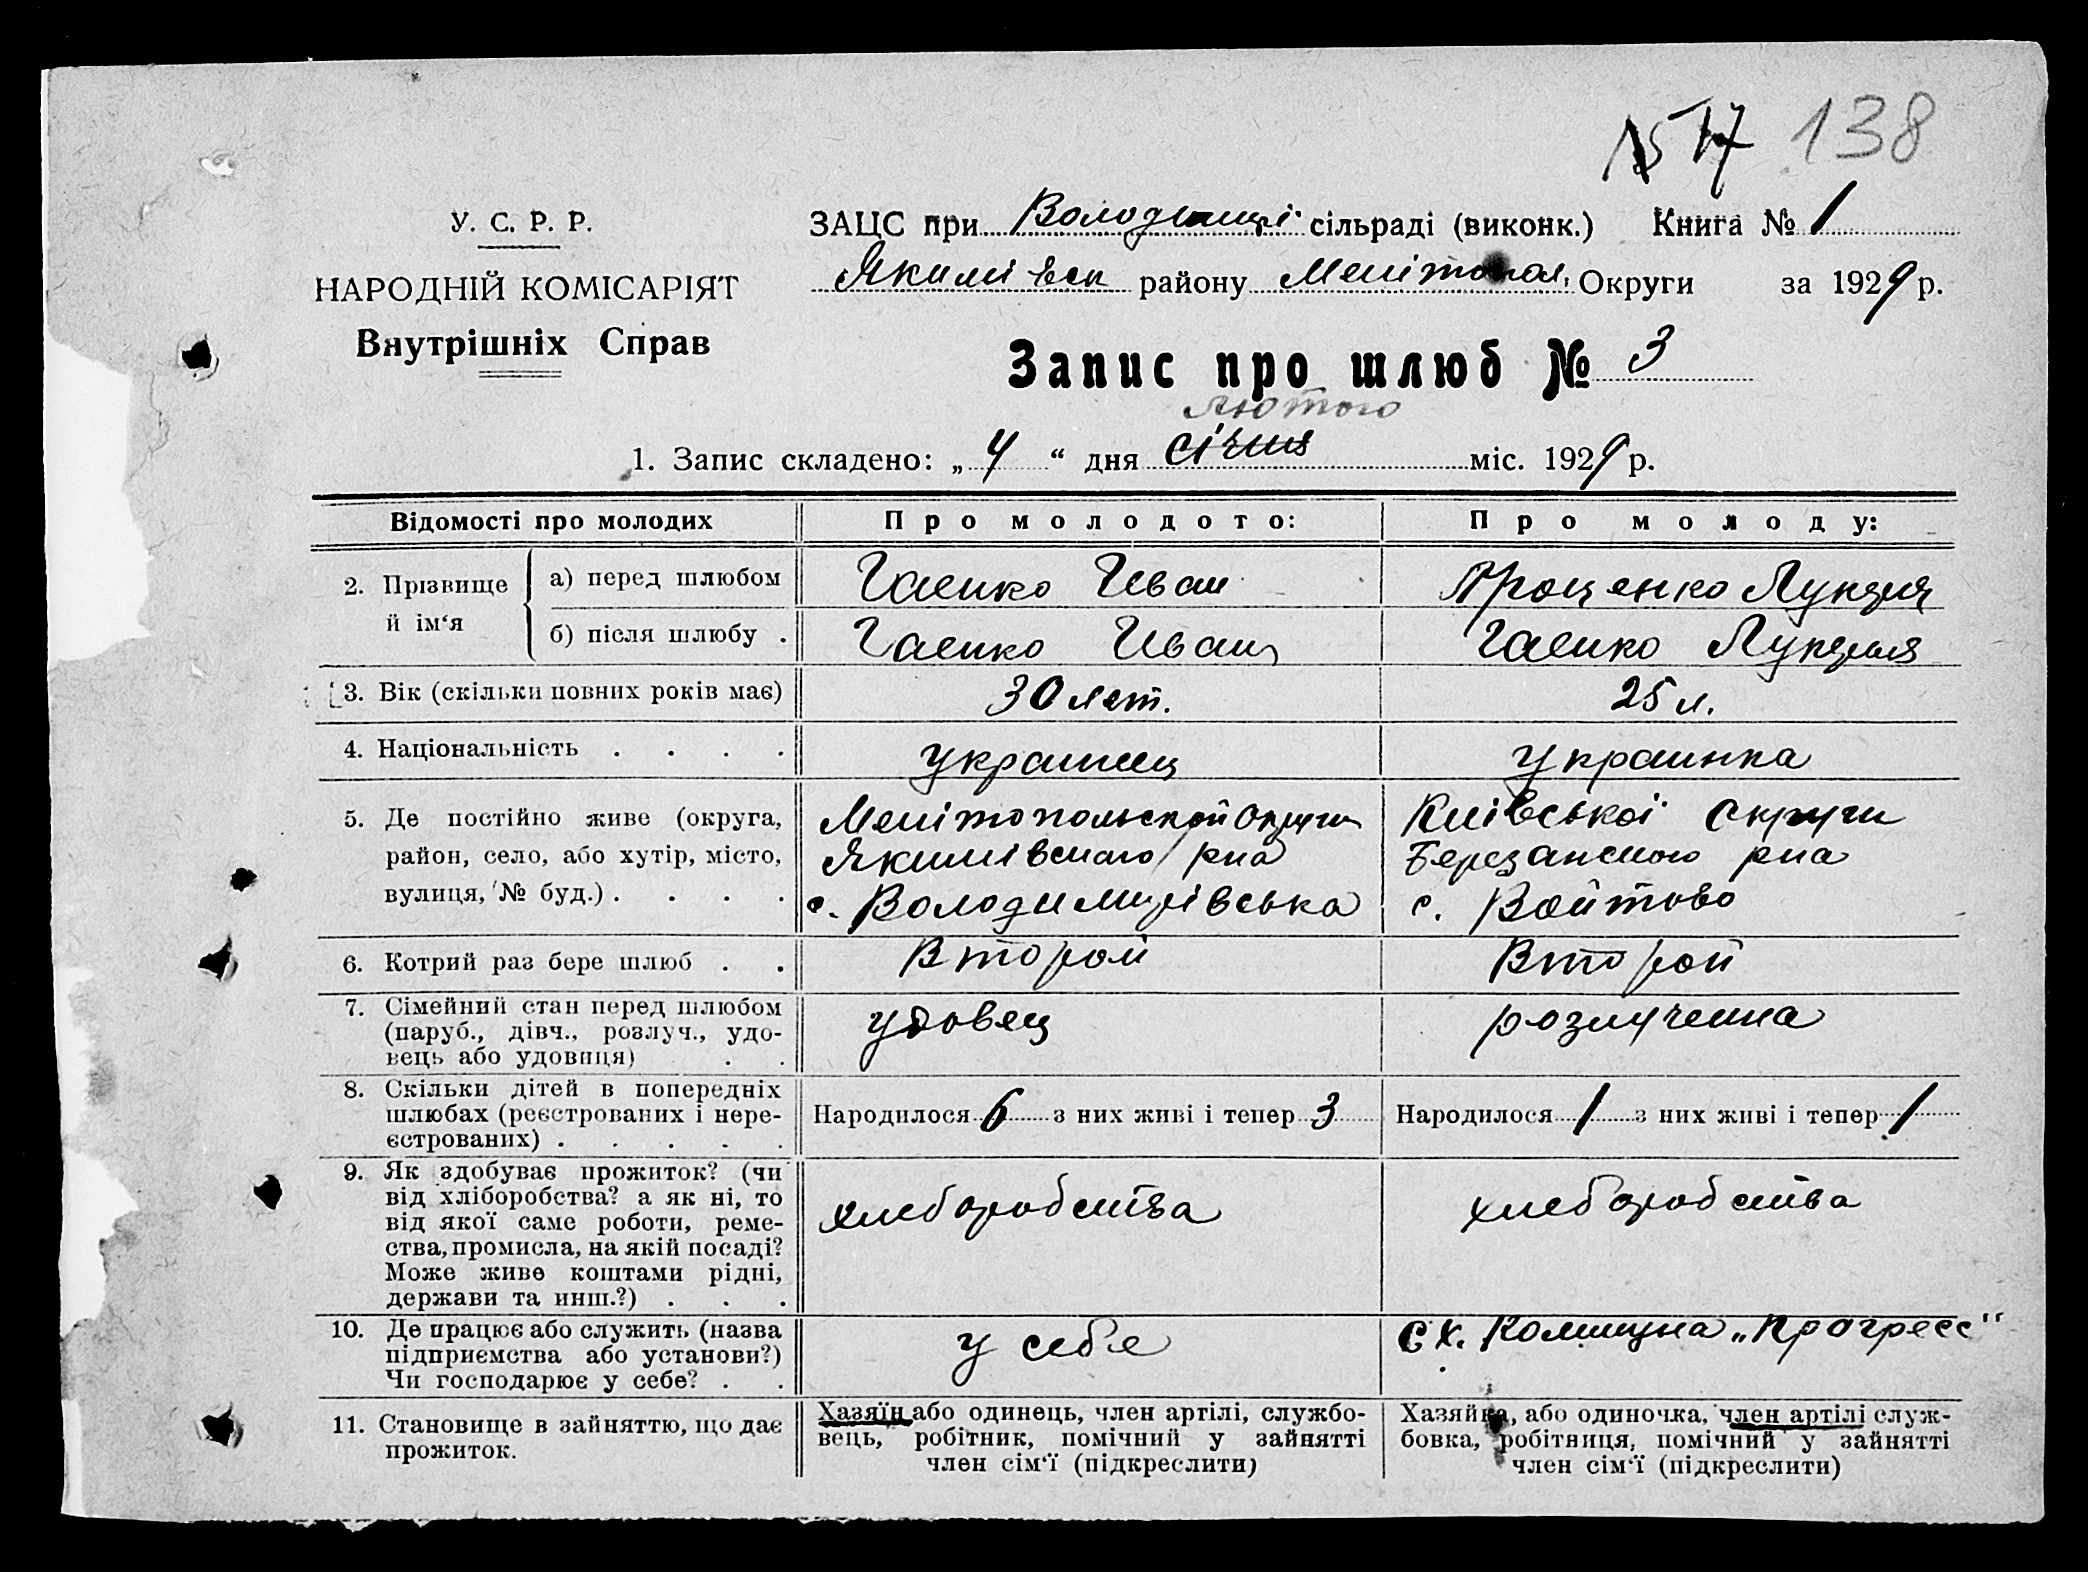 17 138
У. С. Р. Р.
НАРОДНІЙ КОМІСАРІЯТ
Внутрішніх Справ
ЗАЦС при Володимирі сільраді (виконк.) Книга № 1
Якимівск району Мелітопол. Округи за 1929 р.
Запис про шлюб № 3
лютого
1. Запис складено: „ 4 “ дня січня міс. 1929 р.
Відомості про молодих
Про молодого:
Про молоду:
2. Прізвище й ім‘я
а) перед шлюбом
Гаенко Иван
Проценко Лукерия
б) після шлюбу .
Гаенко Иван
Гаенко Лукерия
3. Вік (скільки повних років має)
30 лет.
25 л.
4. Національність . . . .
украинец
украинка
5. Де постійно живе (округа,
район, село, або хутір, місто,
вулиця, № буд.) . . . .
Мелітопольской Округи
Якимівского рна
с. Володимирівська
Київської Округи
Березанского рна
с. Войтово
6. Котрий раз бере шлюб . .
Второй
Второй
7. Сімейний стан перед шлюбом
(паруб., дівч., розлуч., удо-
вець або удовиця) . .
удовец
розлученна
8. Скільки дітей в попередніх
шлюбах (реєстрованих і нере-
єстрованих) . . . . .
Народилося 6 з них живі і тепер 3
Народилося 1 з них живі і тепер 1
9. Як здобуває прожиток? (чи
від хліборобства? а як ні, то
від якої саме роботи, реме-
ства, промисла, на якій посаді?
Може живе коштами рідні,
держави та инш.?) . . .
хлеборобства
хлеборобства
10. Де працює або служить (назва
підприємства або установи?)
Чи господарює у себе? . .
у себе
с х. Коммуна „Прогресс"
11. Становище в зайняттю, що дає
прожиток.
Хазяїн або одинець, член артілі, службо-
вець, робітник, помічний у зайнятті
член сім‘ї (підкреслити)
Хазяйка, або одиночка, член артілі служ-
бовка, робітниця, помічний у зайнятті
член сім‘ї (підкреслити)